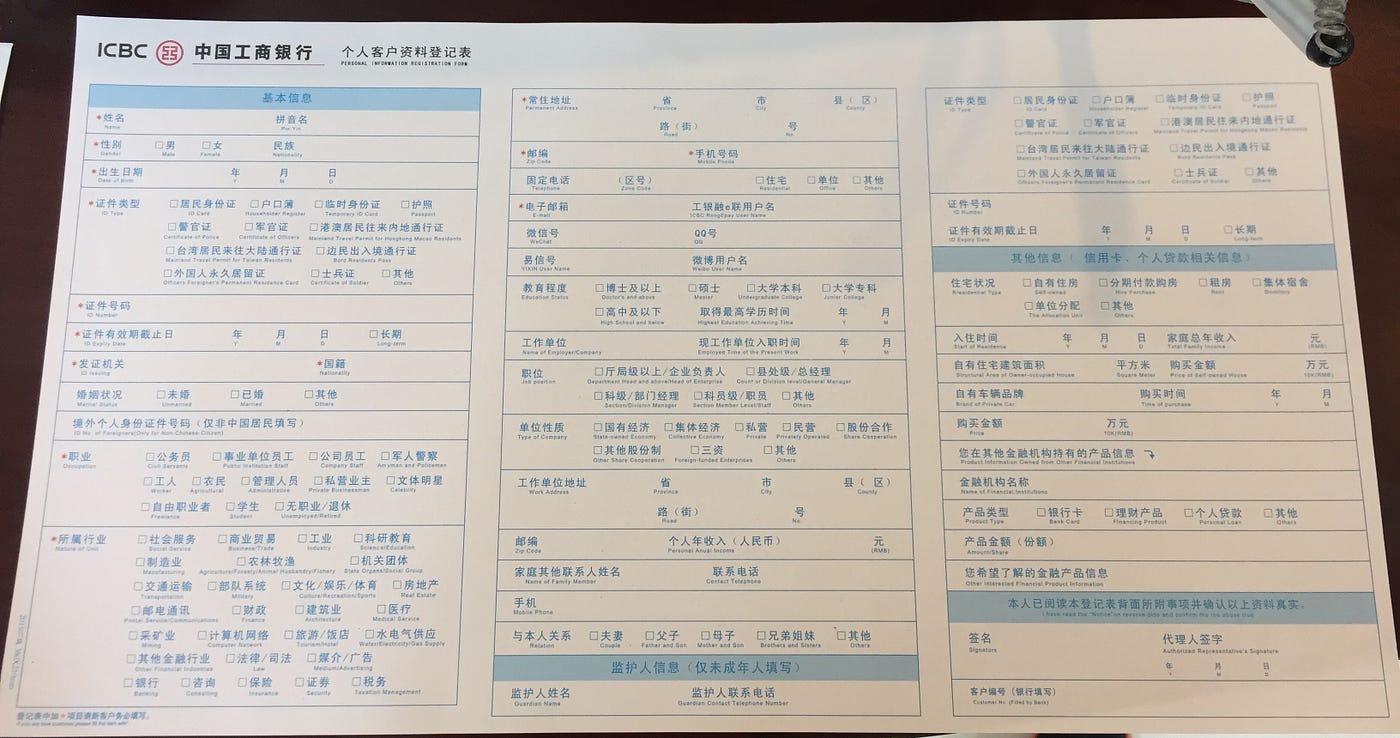 ICBC 中国工商银行 个人客户资料登记表
PERSONAL INFORMATION REGISTRATION FORM
基本信息
*姓名 拼音名
Name Pin Yin
*性别 □男 □女 民族
Gender Male Female Nationality
*出生日期 年 月 日
Date of Birth Y M D
*证件类型 □居民身份证 □户口簿 □临时身份证 □护照
ID Type ID Card Householder Register Temporary ID Card Passport
□警官证 □军官证 □港澳居民往来内地通行证
Certificate of Police Certificate of Officers Mainland Travel Permit for Hongkong Macao Residents
□台湾居民来往大陆通行证 □边民出入境通行证
Mainland Travel Permit for Taiwan Residents Bord Residents Pass
□外国人永久居留证 □士兵证 □其他
Officers Foreigner's Permanent Residence Card Certificate of Soldier Others
*证件号码
ID Number
*证件有效期截止日 年 月 日 □长期
ID Expiry Date Y M D Long-term
*发证机关 *国籍
ID Issuing Nationality
婚姻状况 □未婚 □已婚 □其他
Marital Status Unmarried Married Others
境外个人身份证件号码（仅非中国居民填写）
ID No. of Foreigners(Only for Non-Chinese-Citizen)
*职业 □公务员 □事业单位员工 □公司员工 □军人警察
Occupation Civil Servants Public Institution Staff Company Staff Armyman and Policeman
□工人 □农民 □管理人员 □私营业主 □文体明星
Worker Agricultural Administrative Private Businessman Celebrity
□自由职业者 □学生 □无职业/退休
Freelance Student Unemployed/Retired
*所属行业 □社会服务 □商业贸易 □工业 □科研教育
Nature of Unit Social Service Business/Trade Industry Science/Education
□制造业 □农林牧渔 □机关团体
Manufacturing Agriculture/Forestry/Animal Husbandry/Fishery State Organs/Social Group
□交通运输 □部队系统 □文化/娱乐/体育 □房地产
Transportation Military Culture/Recreation/Sports Real Estate
□邮电通讯 □财政 □建筑业 □医疗
Postal Service/Communications Finance Architecture Medical Service
□采矿业 □计算机网络 □旅游/饭店 □水电气供应
Mining Computer Network Tourism/Hotel Water/Electricity/Gas Supply
□其他金融行业 □法律/司法 □媒介/广告
Other Financial Industries Law Medium/Advertising
□银行 □咨询 □保险 □证券 □税务
Banking Consulting Insurance Security Taxation Management
登记表中加*项目请新客户务必填写。
*常住地址 省 市 县（ 区）
Permanent Address Province City County
路（街） 号
Road No.
*邮编 *手机号码
Zip Code Mobile Phone
固定电话 （区号） □住宅 □单位 □其他
Telephone Zone Code Residential Office Others
*电子邮箱 工银融e联用户名
E-mail ICBC RongEpay User Name
微信号 QQ号
WeChat QQ
易信号 微博用户名
YIXIN User Name Weibo User Name
教育程度 □博士及以上 □硕士 □大学本科 □大学专科
Education Status Doctor's and above Master Undergraduate College Junior College
□高中及以下 取得最高学历时间 年 月
High School and below Highest Education Achieving Time Y M
工作单位 现工作单位入职时间 年 月
Name of Employer/Company Employed Time of the Present Work Y M
职位 □厅局级以上/企业负责人 □县处级/总经理
Job position Department Head and above/Head of Enterprise Count or Division level/General Manager
□科级/部门经理 □科员级/职员 □其他
Section/Division Manager Section Member Level/Staff Others
单位性质 □国有经济 □集体经济 □私营 □民营 □股份合作
Type of Company State-owned Economy Collective Economy Private Privately Operated Share Cooperation
□其他股份制 □三资 □其他
Other Share Cooperation Foreign-funded Enterprises Others
工作单位地址 省 市 县（ 区）
Work Address Province City County
路（街） 号
Road No.
邮编 个人年收入（人民币） 元
Zip Code Personal Anual Income (RMB)
家庭其他联系人姓名 联系电话
Name of Family Member Contact Telephone
手机
Mobile Phone
与本人关系 □夫妻 □父子 □母子 □兄弟姐妹 □其他
Relation Couple Father and Son Mother and Son Brothers and Sisters Others
监护人信息（仅未成年人填写）
监护人姓名 监护人联系电话
Guardian Name Guardian Contact Telephone Number
证件类型 □居民身份证 □户口簿 □临时身份证 □护照
ID Type ID Card Householder Register Temporary ID Card Passport
□警官证 □军官证 □港澳居民往来内地通行证
Certificate of Police Certificate of Officers Mainland Travel Permit for Hongkong Macao Residents
□台湾居民来往大陆通行证 □边民出入境通行证
Mainland Travel Permit for Taiwan Residents Bord Residents Pass
□外国人永久居留证 □士兵证 □其他
Officers Foreigner's Permanent Residence Card Certificate of Soldier Others
证件号码
ID Number
证件有效期截止日 年 月 日 □长期
ID Expiry Date Y M D Long-term
其他信息（ 信用卡、个人贷款相关信息）
住宅状况 □自有住房 □分期付款购房 □租房 □集体宿舍
Residential Type Self-owned Hire Purchase Rent Domitory
□单位分配 □其他
The Allocation Unit Others
入住时间 年 月 日 家庭总年收入 元
Start of Residence Y M D Total Family Income (RMB)
自有住宅建筑面积 平方米 购买金额 万元
Structural Area of Owner-occupied House Square Meter Price of Self-owned House 10K(RMB)
自有车辆品牌 购买时间 年 月
Brand of Private Car Time of purchase Y M
购买金额 万元
Price 10K(RMB)
您在其他金融机构持有的产品信息
Product Information Owned from Other Financial Institutions
金融机构名称
Name of Financial Institutions
产品类型 □银行卡 □理财产品 □个人贷款 □其他
Product Type Bank Card Financing Product Personal Loan Others
产品金额（份额）
Amount/Share
您希望了解的金融产品信息
Other Interested Financial Product Information
本人已阅读本登记表背面所附事项并确认以上资料真实。
I have read the "Notice"on reverse side and confirm the info above true.
签名 代理人签字
Signature Authorized Representative's Signature
年 月 日
Y M D
客户编号（银行填写）
Customer No. (Filled by Bank)